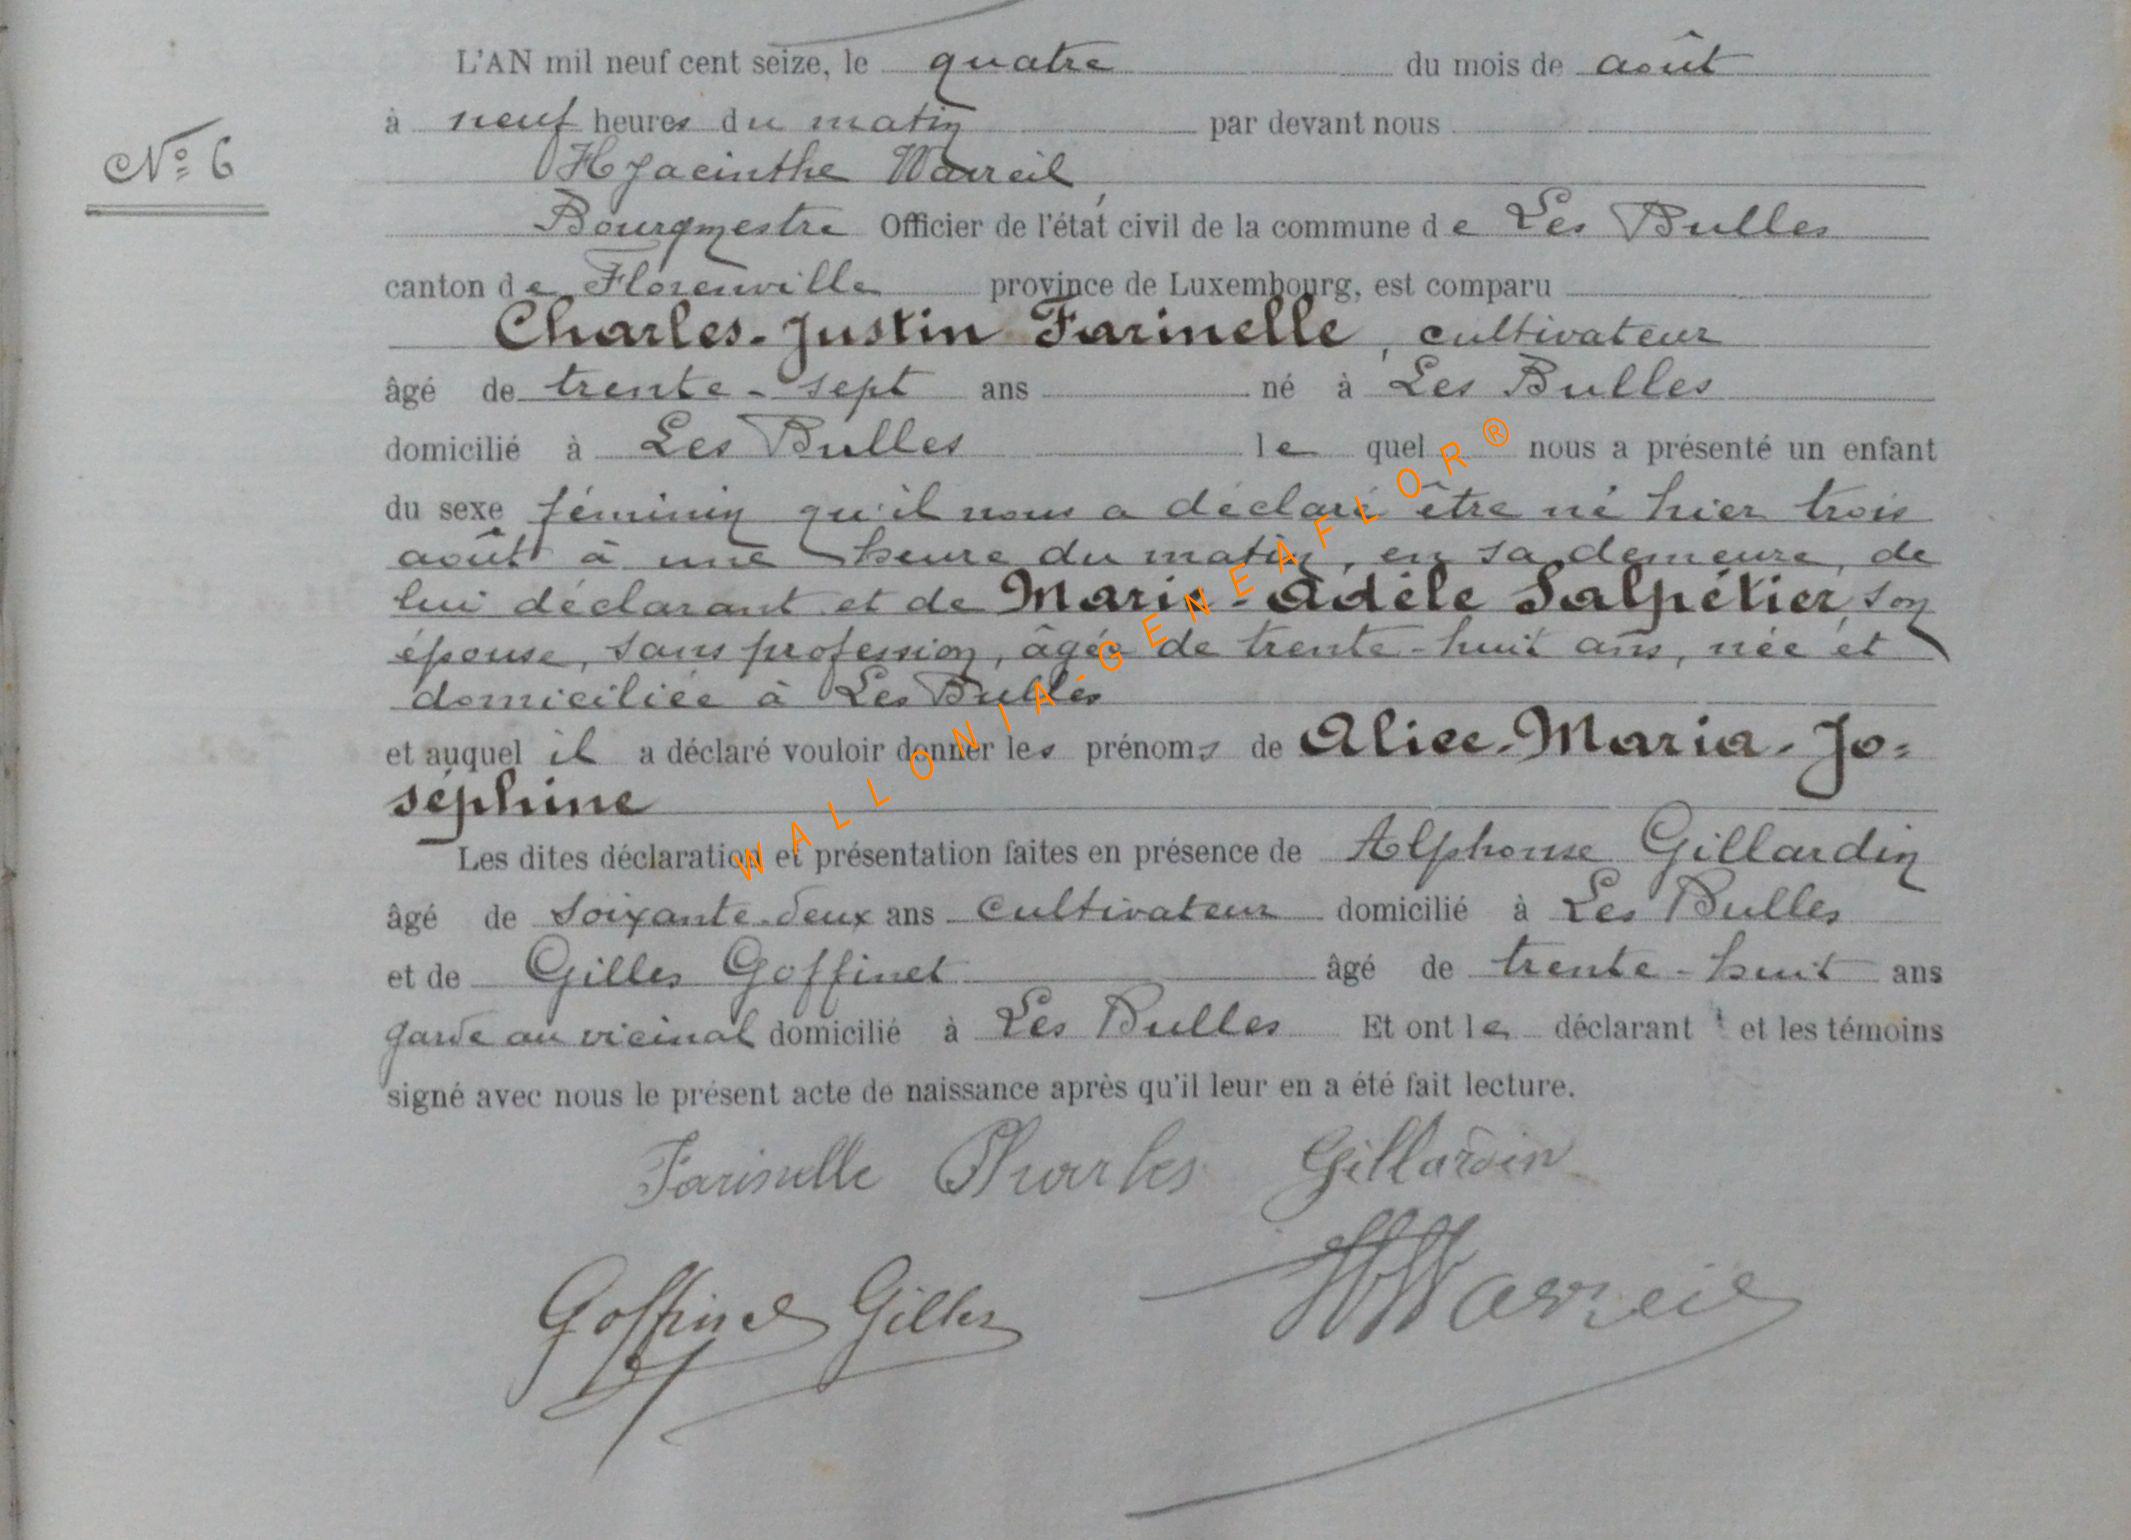 L'AN mil neuf cent seize, le quatre du mois de août
à neuf heures du matin par devant nous
N° 6
Hyacinthe Warreil,
Bourgmestre Officier de l'état civil de la commune de Les Bulles
canton de Florenville province de Luxembourg, est comparu
Charles-Justin Farinelle, cultivateur
âgé de trente-sept ans né à Les Bulles
domicilié à Les Bulles le quel nous a présenté un enfant
du sexe féminin qu'il nous a déclaré être né hier trois
août à une heure du matin, en sa demeure, de
lui déclarant et de Marie-Adèle Salpétier, son
épouse, sans profession, âgée de trente-huit ans, née et
domiciliée à Les Bulles
et auquel il a déclaré vouloir donner les prénoms de Alice-Maria-Jo=
séphine
Les dites déclaration et présentation faites en présence de Alphonse Gillardin
âgé de soixante-deux ans cultivateur domicilié à Les Bulles
et de Gilles Goffinet âgé de trente-huit ans
garde au vicinal domicilié à Les Bulles Et ont le déclarant et les témoins
signé avec nous le présent acte de naissance après qu'il leur en a été fait lecture.
Farinelle Charles Gillardin
Goffinet Gilles HWarreil
WALLONIA-GENEAFLOR®